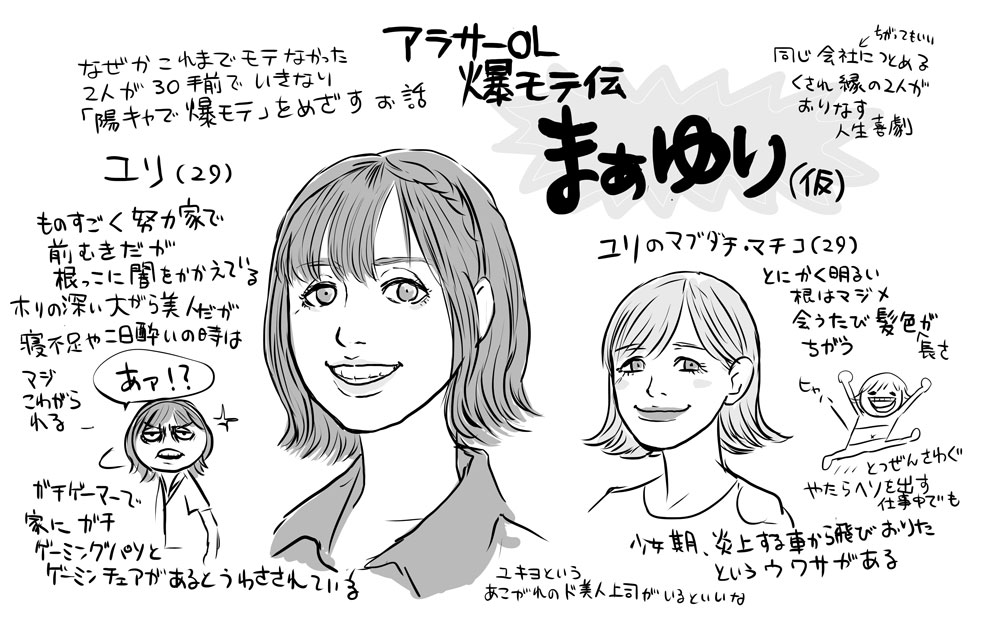 アラサーOL
爆モテ伝
まぁゆり(仮)
なぜか これまで モテなかった
2人が 30手前で いきなり
「陽キャで爆モテ」をめざす お話
ちがってもいい
同じ会社につとめる
くされ縁の2人が
おりなす
人生喜劇
ユリ(29)
ものすごく努力家で
前むきだが
根っこに闇をかかえている
ホリの深い大がら美人だが
寝不足や二日酔いの時は
マジ
こわがら
れる
あァ!?
ガチゲーマーで
家に ガチ
ゲーミングパソと
ゲーミンチェアがあるとうわさされている
ユリのマブダチ・マチコ(29)
とにかく明るい
根はマジメ
会うたび髪色が
長さ
ちがう
ヒャ
とつぜんさわぐ
やたらヘソを出す
仕事中でも
少女期、炎上する車から飛びおりた
というウワサがある
ユキヨという
あこがれのド美人上司がいるといいな